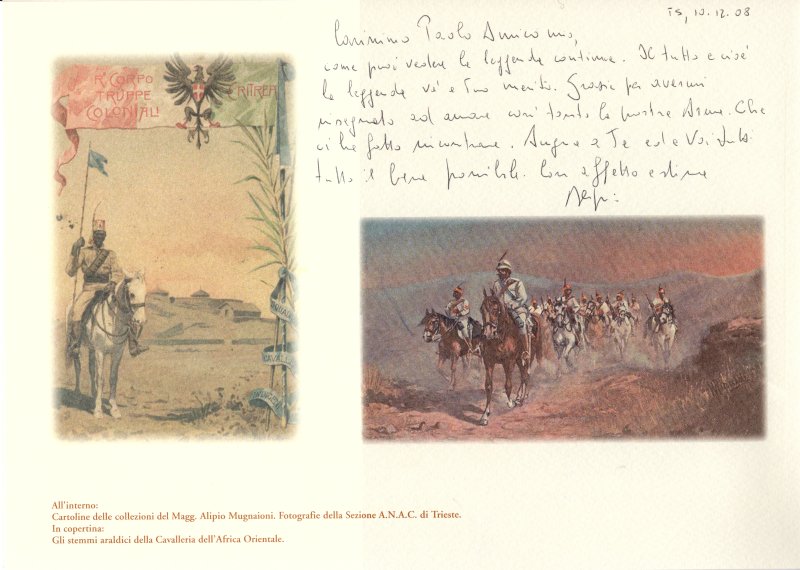 TS, 10.12.08
Carissimo Paolo Amicomio,
come puoi vedere la leggenda continua. Il tutto e cioè
la leggenda và a Tuo merito. Grazie per avermi
insegnato ad amare così tanto la nostra Arma. Che
ci ha fatto incontrare. Auguro a Te ed a Voi tutti
tutto il bene possibile. Con affetto e stima
R. CORPO
TRUPPE
COLONIALI
ERITREA
SQUAD
CAVALL
All'interno:
Cartoline delle collezioni del Magg. Alipio Mugnaioni. Fotografie della Sezione A.N.A.C. di Trieste.
In copertina:
Gli stemmi araldici della Cavalleria dell'Africa Orientale.